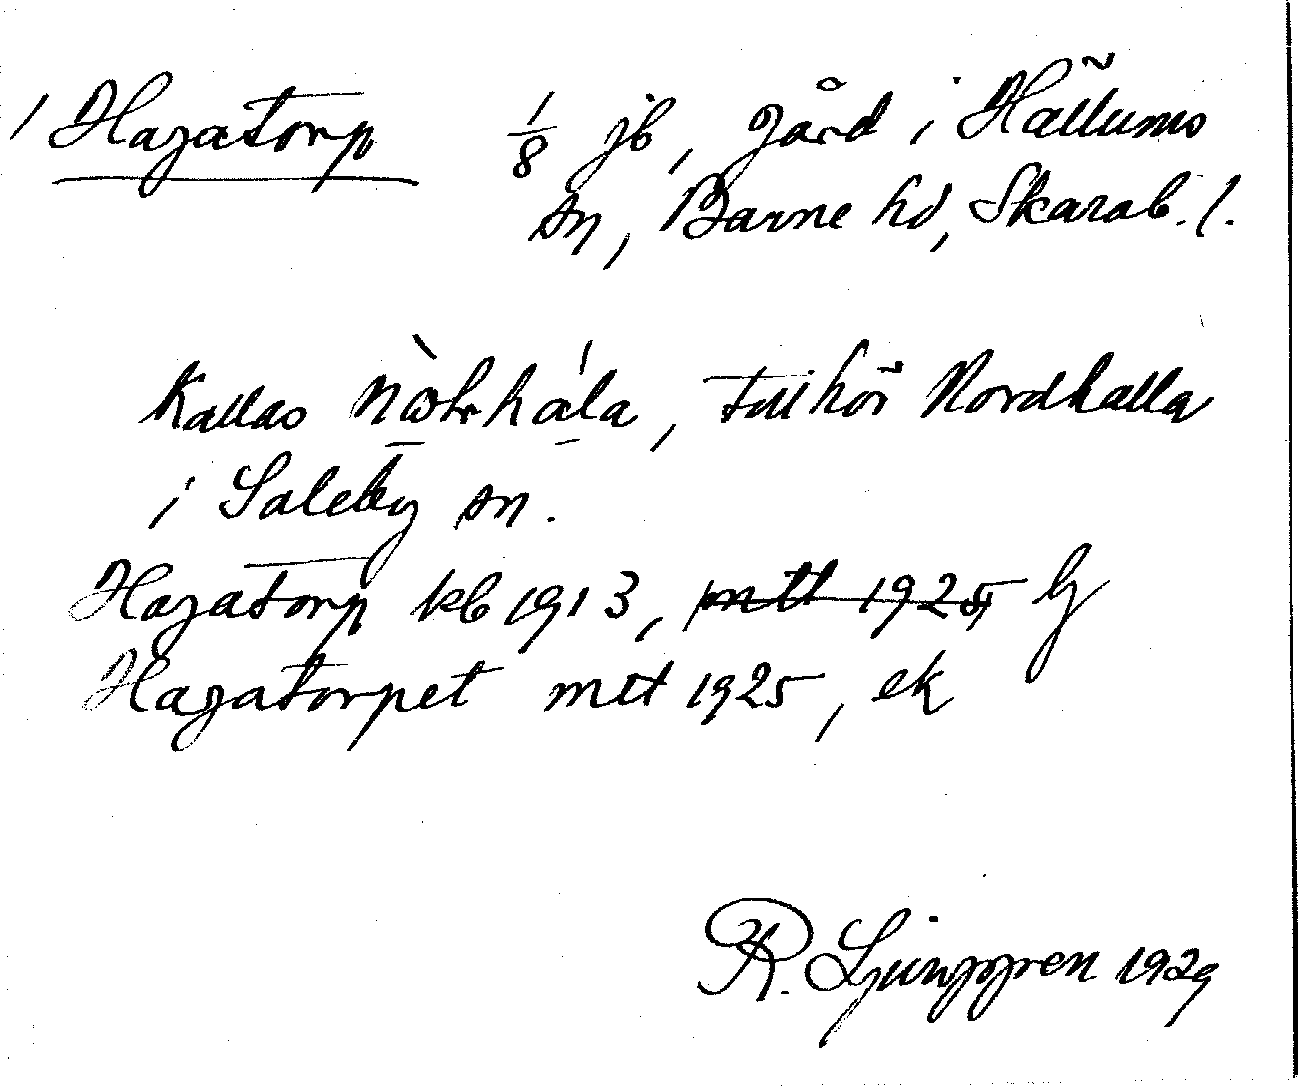 1 Hagatorp 1/8 jb, gård i Hällums
sn, Barne hd, Skarab. l.
Kallas
tillhör Nordhalla
i Saleby sn.
Hagatorp kb 1913, mtl 1925
Hagatorpet mtl 1925, ek
R. Ljunggren 1929